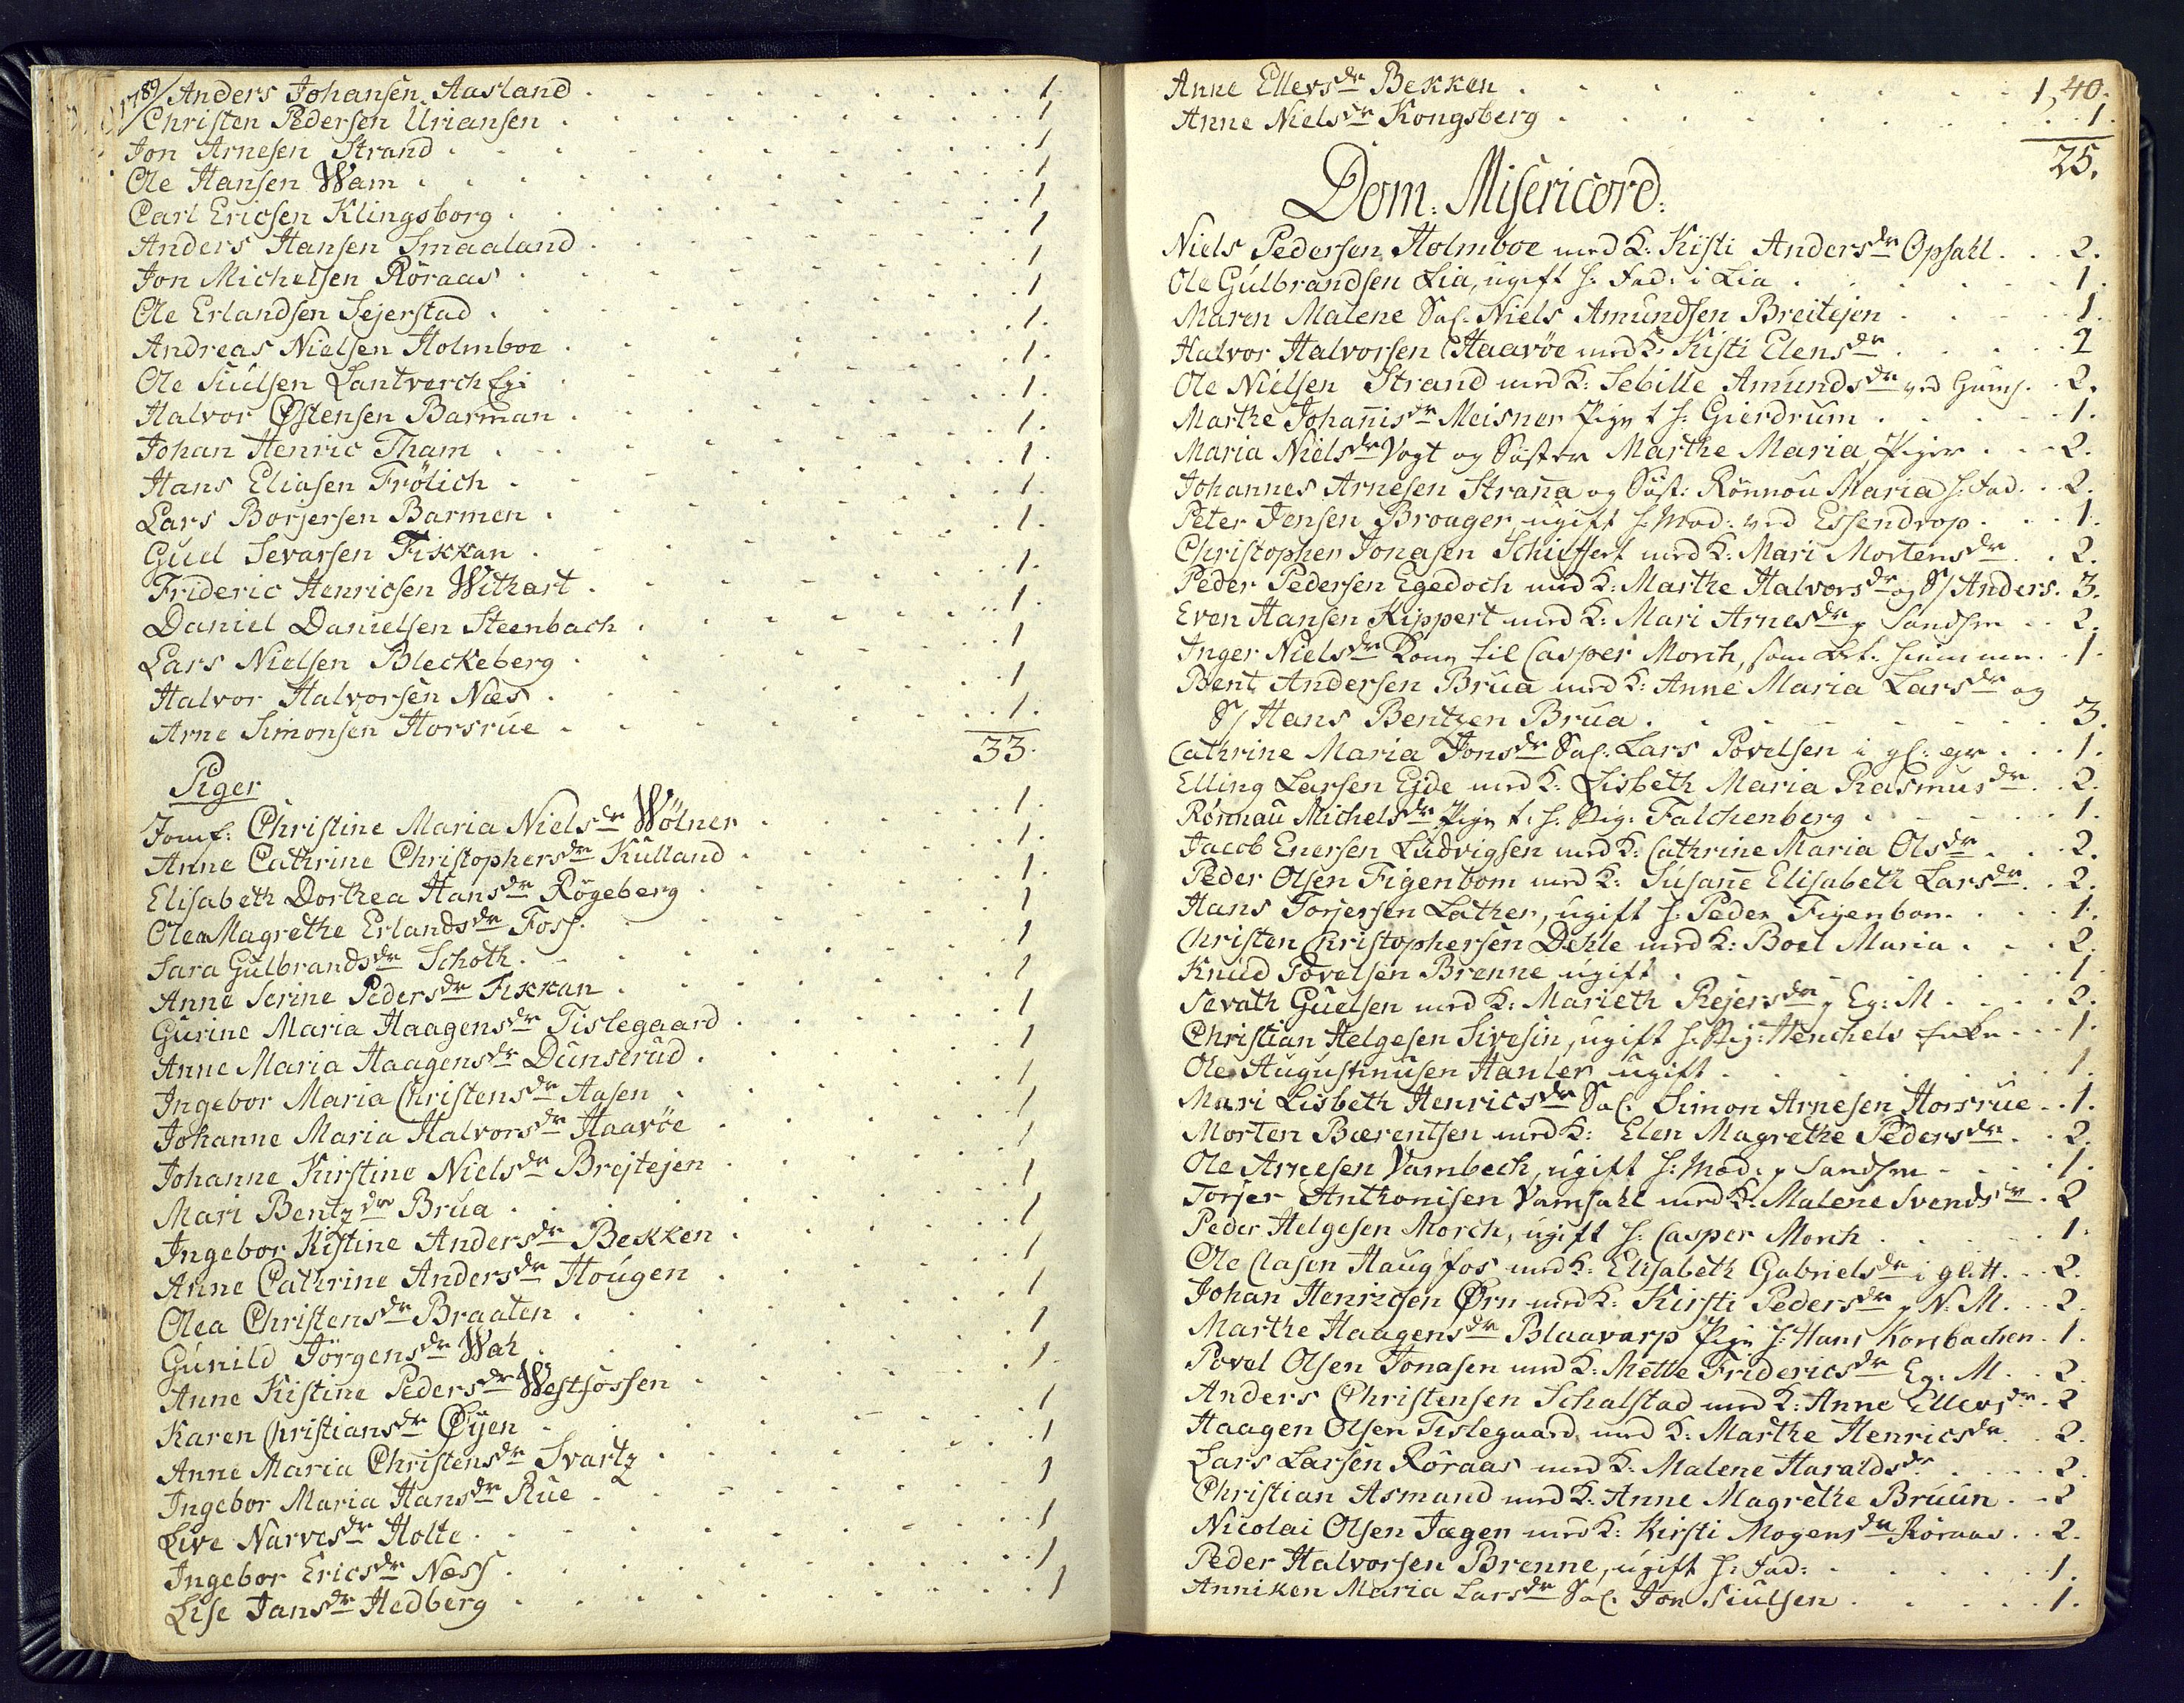 1789/ Anders Johansen Aasland . . . 1.
Christen Pedersen Uriansen . . . 1
Jon Arnesen Strand . . . 1
Ole Hansen Wam . . . 1
Carl Ericsen Klingsborg . . . 1
Anders Hansen Smaaland . . . 1
Jon Michelsen Röraas . . . 1
Ole Erlandsen Sejerstad . . . 1
Andreas Nielsen Holmboe . . . 1.
Ole Siulsen Lantverch Eje . . . 1.
Halvor Østensen Barman . . . 1.
Johan Henric Tham . . . 1.
Hans Eliasen Frölich . . . 1.
Lars Borjersen Barmen . . . 1.
Gull Sevarsen Fikkan . . . 1.
Frideric Henricsen Withart . . . 1.
Daniel Danielsen Steenbach . . . 1.
Lars Nielsen Bleckeberg . . . 1
Halvor Halvorsen Næs . . . 1
Arne Simonsen Horsrue . . . 1.
33.
Piger
Jomf: Christine Maria Nielsdr Wölner . . . 1.
Anne Cathrine Christophersdr Kulland . . . 1.
Elisabeth Dorthea Hansdr Rögeberg . . . 1.
Olea Magrethe Erlandsdr Foss . . . 1
Sara Gulbrandsdr Schoth . . . 1
Anne Serine Pedersdr Fikkan . . . 1
Gurine Maria Haagensdr Tislegaard . . . 1
Anne Maria Haagensdr Dunserud . . . 1
Ingebor Maria Christensdr Aasen . . . 1
Johanne Maria Halvorsdr Haavöe . . . 1
Johanne Kirstine Nielsdr Brejtejen . . . 1
Mari Bentzdr Brua . . . 1
Ingebor Kistine Andersdr Bekken . . . 1
Anne Cathrine Andersdr Hougen . . . 1
Olea Christensdr Braaten . . . 1
Gunild Jörgensdr Wah . . . 1
Anne Kistine Pedersdr Westfossen . . . 1.
Karen Christiansdr Øyen . . . 1
Anne Maria Christensdr Svartz . . . 1
Ingebor Maria Hansdr Rue . . . 1
Live Narvesdr Holte . . . 1
Ingebor Ericsdr Næss . . . 1
Lise Jansdr Hedberg . . . 1
Anne Ellevsdr Bekken . . . 1,40.
Anne Nielsdr Kongsberg . . . 1.
25.
Dom: Misericord:
Niels Pedersen Holmboe med K: Kisti Andersdr Opsahl . . . 2.
Ole Gulbrandsen Lia, ugift h: Fad: i Lia . . . 1.
Maren Malene Sal. Niels Amundsen Breitejen . . . 1.
Halvor Halvorsen Haavöe med K: Kisti Elensdr . . . 2
Ole Nielsen Strand med K: Sebille Amundsdr ved . . . 2.
Marthe Johañisdr Meisner Pige t h: Gierdrum . . . 1.
Maria Nielsdr Vogt og Söster Marthe Maria Piger . . . 2.
Johannes Arnesen Straña og Söst: Rönnou Maria h: Fad. . . 2.
Peter Jensen Broager, ugift h: Mod: ved Essendrop . . . 1.
Christopher Jonasen Schiffert med K: Mari Mortensdr . . . 2.
Peder Pedersen Egedoch med K: Marthe Halvorsdr og S/ Anders. 3.
Even Hansen Kippert med K: Mari Arnesdr p Sandsvr . . . 2.
Inger Nielsdr Kone til Casper Morch, som . . . 1.
Bent Andersen Brua med K: Anne Maria Larsdr og
S/ Hans Bentzen Brua . . . 3.
Cathrine Maria Jonsdr Sal. Lars Povelsen i gl: gr . . . 1.
Elling Larsen Ejde med K: Lisbeth Maria Rasmusdr . . . 2.
Rönnau Michelsdr Pige t. h. Falchenberg . . . 1.
Jacob Enersen Ludvigsen med K: Cathrine Maria Olsdr . . . 2.
Peder Olsen Figenbom med K: Susañe Elisabeth Larsdr . . . 2.
Hans Torjersen Lather, ugift h: Peder Figenbom . . . 1.
Christen Christophersen Dehle med K: Boel Maria . . . 2.
Knud Povelsen Brenne ugift . . . 1
Sevath Guelsen med K: Marieth Rejersdr p Eg: M . . . 2.
Christian Helgesen Sivesin, ugift h: Henchels Enke . . . 1.
Ole Augustinusen Hanler ugift . . . 1.
Mari Lisbeth Henricsdr Sal. Simon Arnesen Horsrue . . 1.
Morten Bærentsen med K: Elen Magrethe Pedersdr . . . 2.
Ole Arnesen Vambech, ugift h: Mod: p Sandsvr . . . 1.
Torjer Anthonisen Vamsahl med K: Malene Svendsdr . 2
Peder Helgesen Morch, ugift h: Casper Morch . . . 1.
Ole Clasen Haugfos med K: Elisabeth Gabrielsdr i gl: H. . . 2.
Johan Henricsen Ørn med K: Kirsti Pedersdr p N. M. . . 2.
Marthe Haagensdr Blaavarp Pige h: Hans Korsbachen . 1.
Povel Olsen Jonasen med K: Mette Fridericsdr Eg. M. . . 2.
Anders Christensen Schalstad med K: Anne Ellevsdr . 2
Haagen Olsen Tislegaard med K: Marthe Henricsdr . . 2.
Lars Larsen Röraas med K: Malene Haraldsdr . . . 2.
Christian Asmand med K: Anne Magrethe Bruun . . 2
Nicolai Olsen Jæger med K: Kirsti Mogensdr Röraas . . 2.
Peder Halvorsen Brenne, ugift h: Fad: . . . 1.
Anniken Maria Larsdr Sal. Jon Siulsen . . . 1.